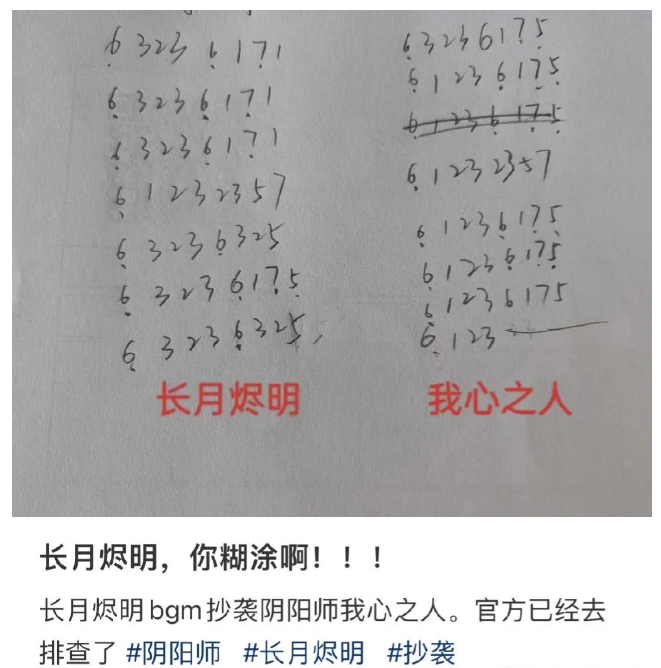 6 3 2 3 6 1 7 1
6 3 2 3 6 1 7 1
6 3 2 3 6 1 7 1
6 1 2 3 2 3 5 7
6 3 2 3 6 3 2 5
6 3 2 3 6 1 7 5
6 3 2 3 6 3 2 5
长月烬明
6 3 2 3 6 1 7 5
6 1 2 3 6 1 7 5
6 1 2 3 6 1 7 5
6 1 2 3 2 3 5 7
6 1 2 3 6 1 7 5
6 1 2 3 6 1 7 5
6 1 2 3 6 1 7 5
6 1 2 3 —
我心之人
长月烬明，你糊涂啊！！！
长月烬明bgm抄袭阴阳师我心之人。官方已经去
排查了 #阴阳师 #长月烬明 #抄袭